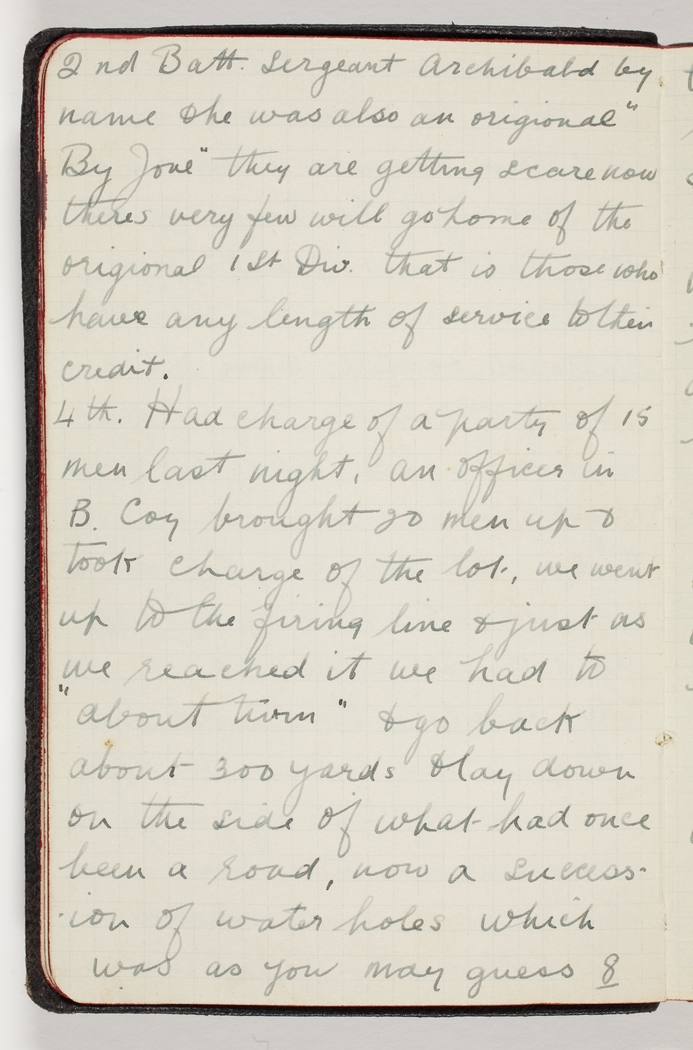 2nd Batt. Sergeant Archibald by
name & he was also an origional "
By Jove" they are getting scare now
theres very few will go home of the
origional 1st Div. that is those who
have any length of service to their
credit.
4th. Had charge of a party of 15
men last night, an officer in
B. Coy brought 20 men up &
took charge of the lot, we went
up to the firing line & just as
we reached it we had to
"about turn" & go back
about 300 yards & lay down
on the side of what had once
been a road, now a success-
-ion of water holes which
was as you may guess 8